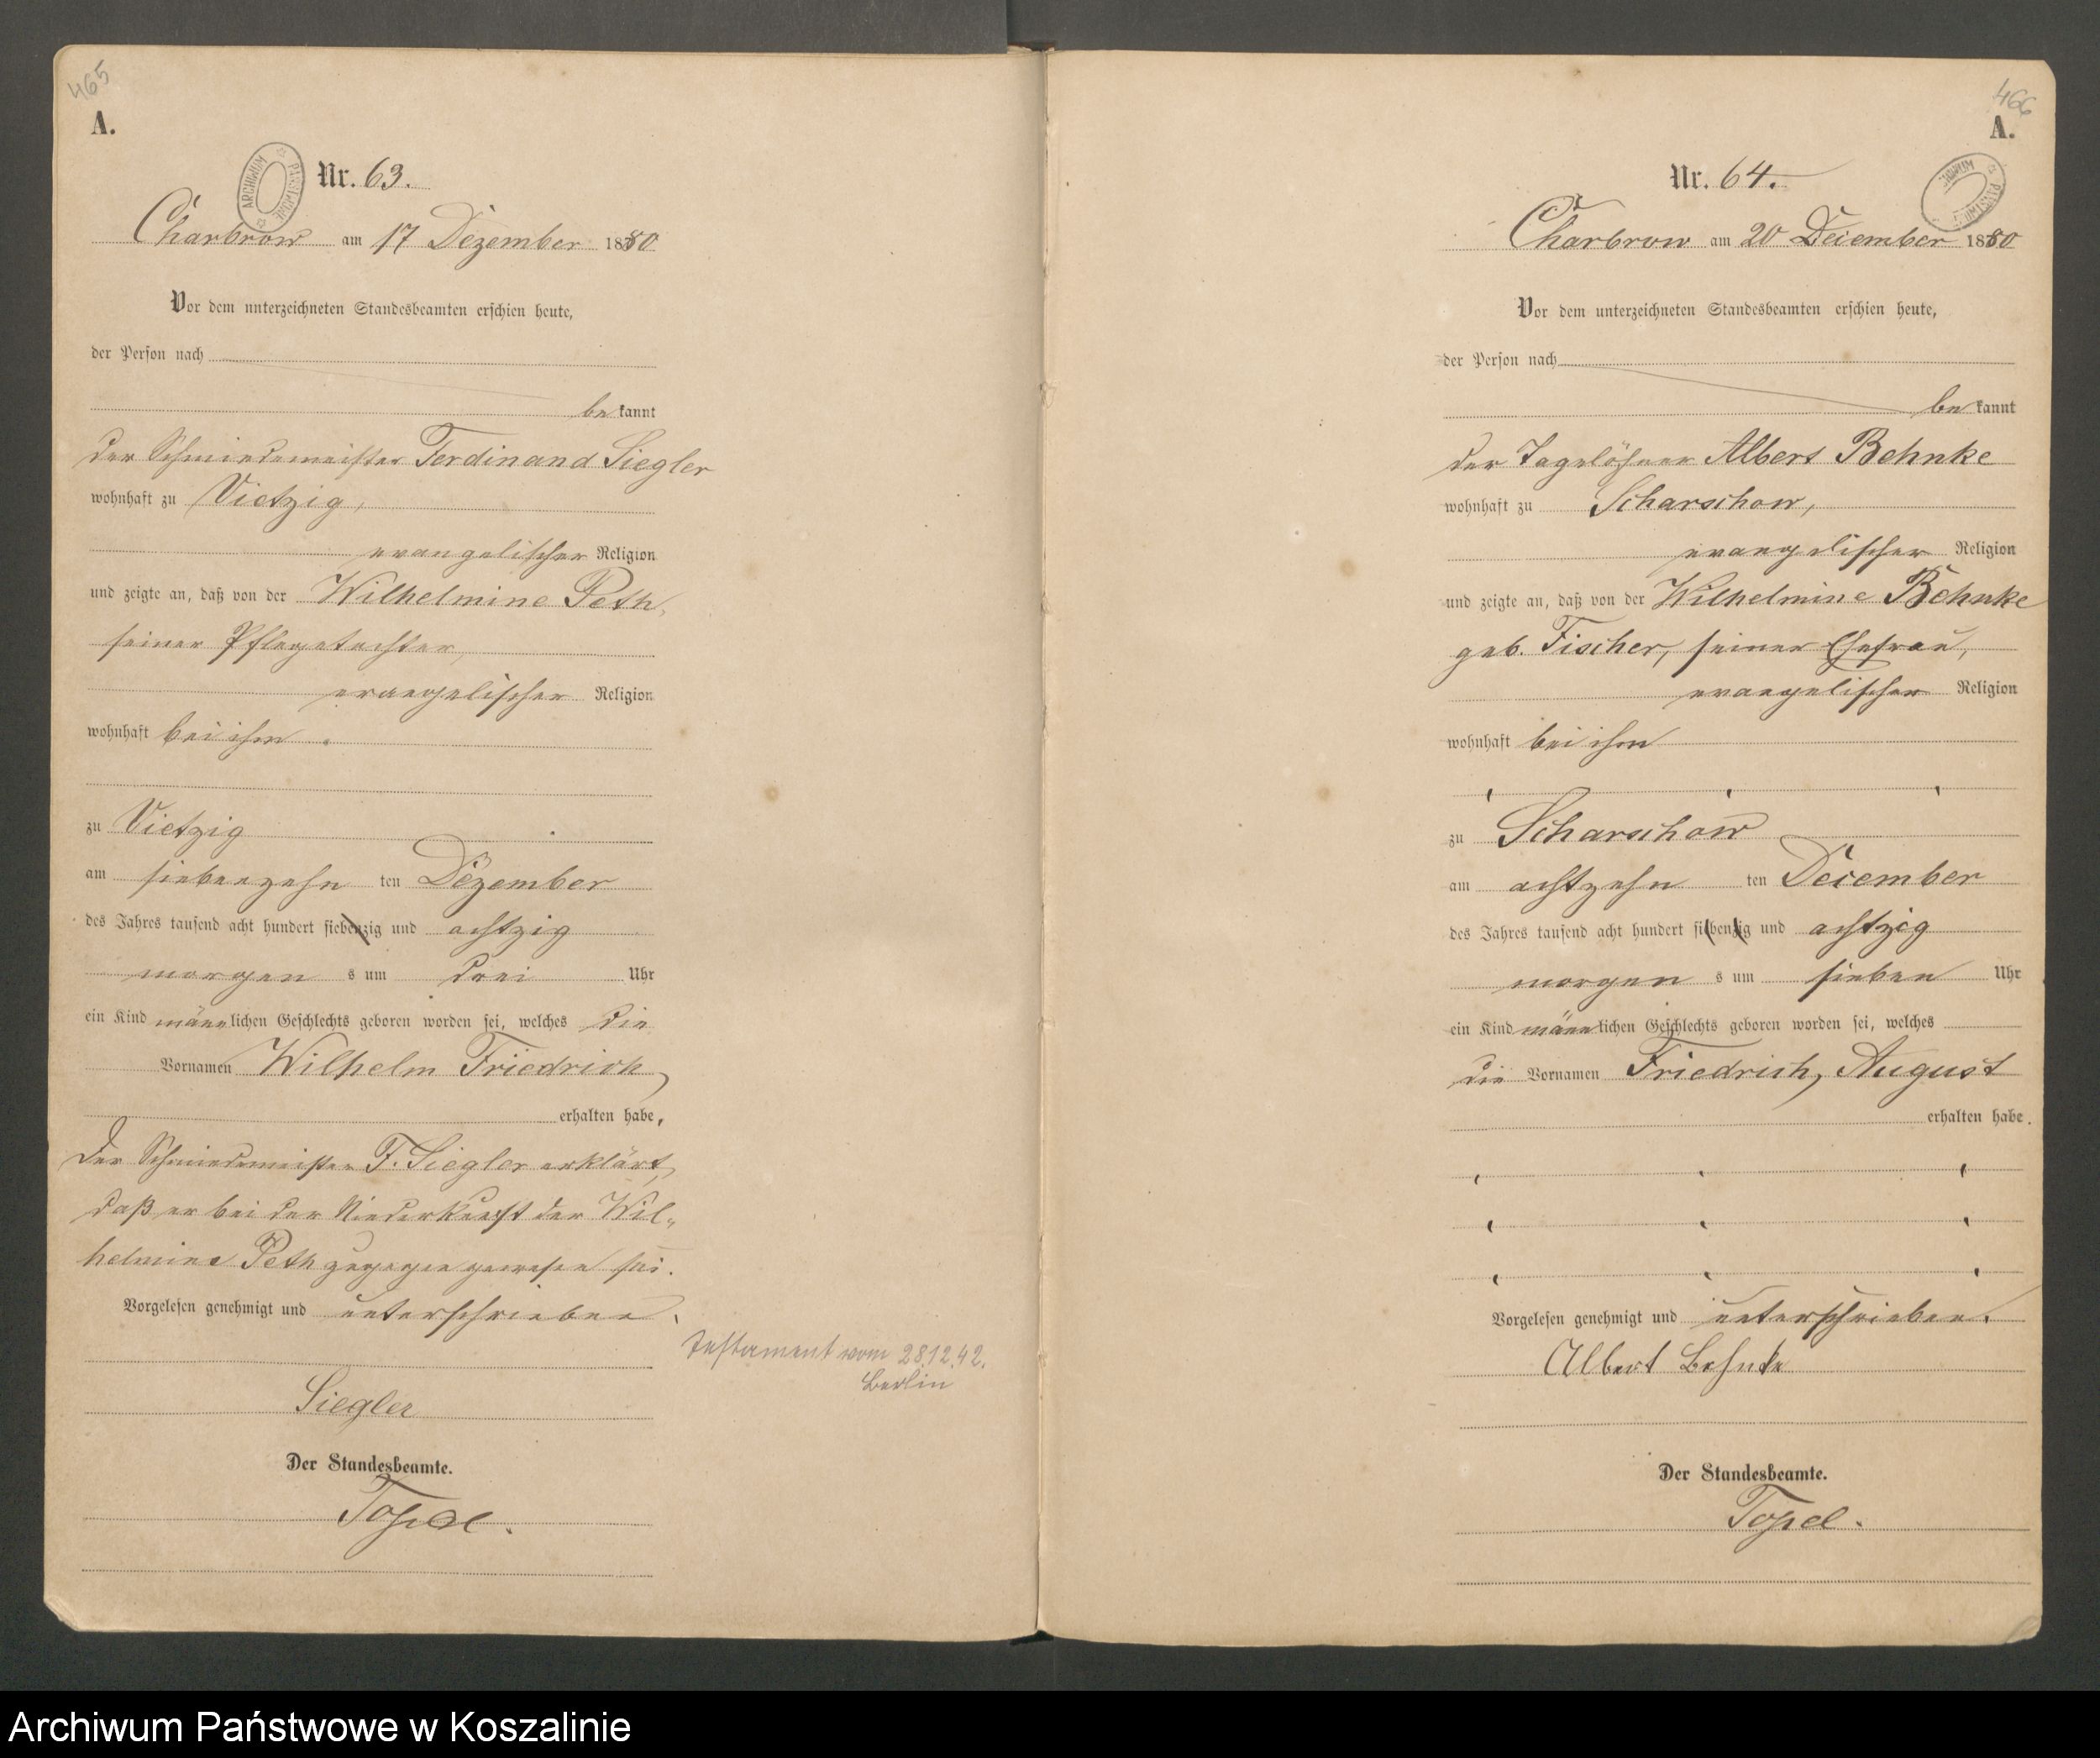 465
A.
ARCHIWUM PAŃSTWOWE
Nr. 63.
Charbrow am 17 Dezember 1880
Vor dem unterzeichneten Standesbeamten erschien heute,
der Person nach
be kannt
der Schmiedemeister Ferdinand Siegler
wohnhaft zu Vietzig,
evangelischer Religion
und zeigte an, daß von der Wilhelmine Peth,
seiner Pflegetochter,
evangelischer Religion
wohnhaft bei ihm
zu Vietzig
am siebenzehn ten Dezember
des Jahres tausend acht hundert siebenzig und achtzig
morgen s um drei Uhr
ein Kind männlichen Geschlechts geboren worden sei, welches die
Vornamen Wilhelm Friedrich,
erhalten habe,
Der Schmiedemeister F. Siegler erklärt,
daß er bei der Niederkunft der Wil-
helmine Peth zugegen gewesen sei.
Vorgelesen genehmigt und unterschrieben.
Siegler
Der Standesbeamte.
Topel.
Testament vom 28.12.42.
Berlin
466
A.
ARCHIWUM PAŃSTWOWE
Nr. 64.
Charbrow am 20 December 1880
Vor dem unterzeichneten Standesbeamten erschien heute,
der Person nach
be kannt
der Tagelöhner Albert Behnke
wohnhaft zu Scharschow,
evangelischer Religion
und zeigte an, daß von der Wilhelmine Behnke
geb. Fischer, seiner Ehefrau,
evangelischer Religion
wohnhaft bei ihm
zu Scharschow
am achtzehn ten December
des Jahres tausend acht hundert siebenzig und achtzig
morgen s um sieben Uhr
ein Kind männlichen Geschlechts geboren worden sei, welches
die Vornamen Friedrich, August
erhalten habe.
Vorgelesen genehmigt und unterschrieben.
Albert Behnke
Der Standesbeamte.
Topel.
Archiwum Państwowe w Koszalinie